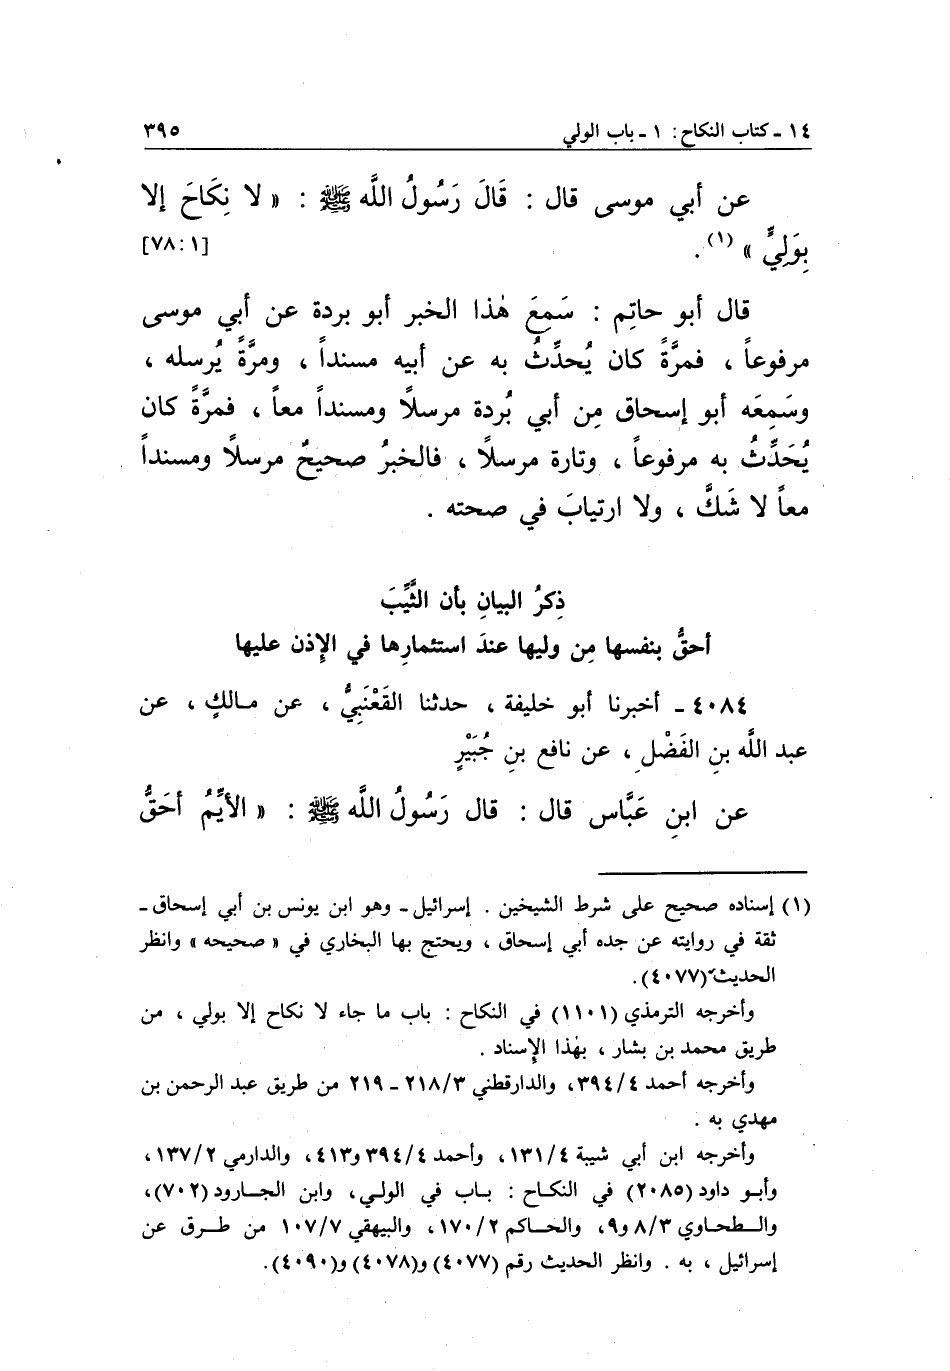 ١٤ ـ كتاب النكاح: ١ ـ باب الولي ٣٩٥
عن أبي موسى قال : قَالَ رَسُولُ اللَّه ﷺ : « لا نِكَاحَ إلا
بِوَلِيٍّ » (١). [٧٨:١]
قال أبو حاتِم : سَمِعَ هٰذا الخبر أبو بردة عن أبي موسى
مرفوعاً ، فمرَّةً كان يُحدِّثُ به عن أبيه مسنداً ، ومرَّةً يُرسله ،
وسَمِعَه أبو إسحاق مِن أبي بُردة مرسلًا ومسنداً معاً ، فمرَّةً كان
يُحَدِّثُ به مرفوعاً ، وتارة مرسلًا ، فالخبرُ صحيحٌ مرسلًا ومسنداً
معاً لا شَكَّ ، ولا ارتيابَ في صحته .
ذِكرُ البيانِ بأن الثَّيِّبَ
أحقُّ بنفسها مِن وليها عندَ استئمارِها في الإِذن عليها
٤٠٨٤ ـ أخبرنا أبو خليفة ، حدثنا القَعْنَبِيُّ ، عن مـالكٍ ، عن
عبد اللَّه بنِ الفَضْلِ ، عن نافع بنِ جُبَيْرٍ
عن ابنِ عَبَّاس قال : قال رَسُولُ اللَّه ﷺ : « الأَيِّمُ أَحَقُّ
(١) إسناده صحيح على شرط الشيخين . إسرائيل ـ وهو ابن يونس بن أبي إسحاق ـ
ثقة في روايته عن جده أبي إسحاق ، ويحتج بها البخاري في « صحيحه » وانظر
الحديث (٤٠٧٧).
وأخرجه الترمذي (١١٠١) في النكاح : باب ما جاء لا نكاح إلا بولي ، من
طريق محمد بن بشار ، بهٰذا الإسناد .
وأخرجه أحمد ٣٩٤/٤، والدارقطني ٢١٨/٣ ـ ٢١٩ من طريق عبد الرحمن بن
مهدي به .
وأخرجه ابن أبي شيبة ١٣١/٤، وأحمد ٣٩٤/٤ و٤١٣، والدارمي ١٣٧/٢،
وأبـو داود (٢٠٨٥) في النكـاح : بـاب في الولـي، وابن الجـارود (٧٠٢)،
والـطحاوي ٨/٣ و٩، والحـاكم ١٧٠/٢، والبيهقي ١٠٧/٧ من طـرق عن
إسرائيل ، به . وانظر الحديث رقم (٤٠٧٧) و(٤٠٧٨) و(٤٠٩٠).